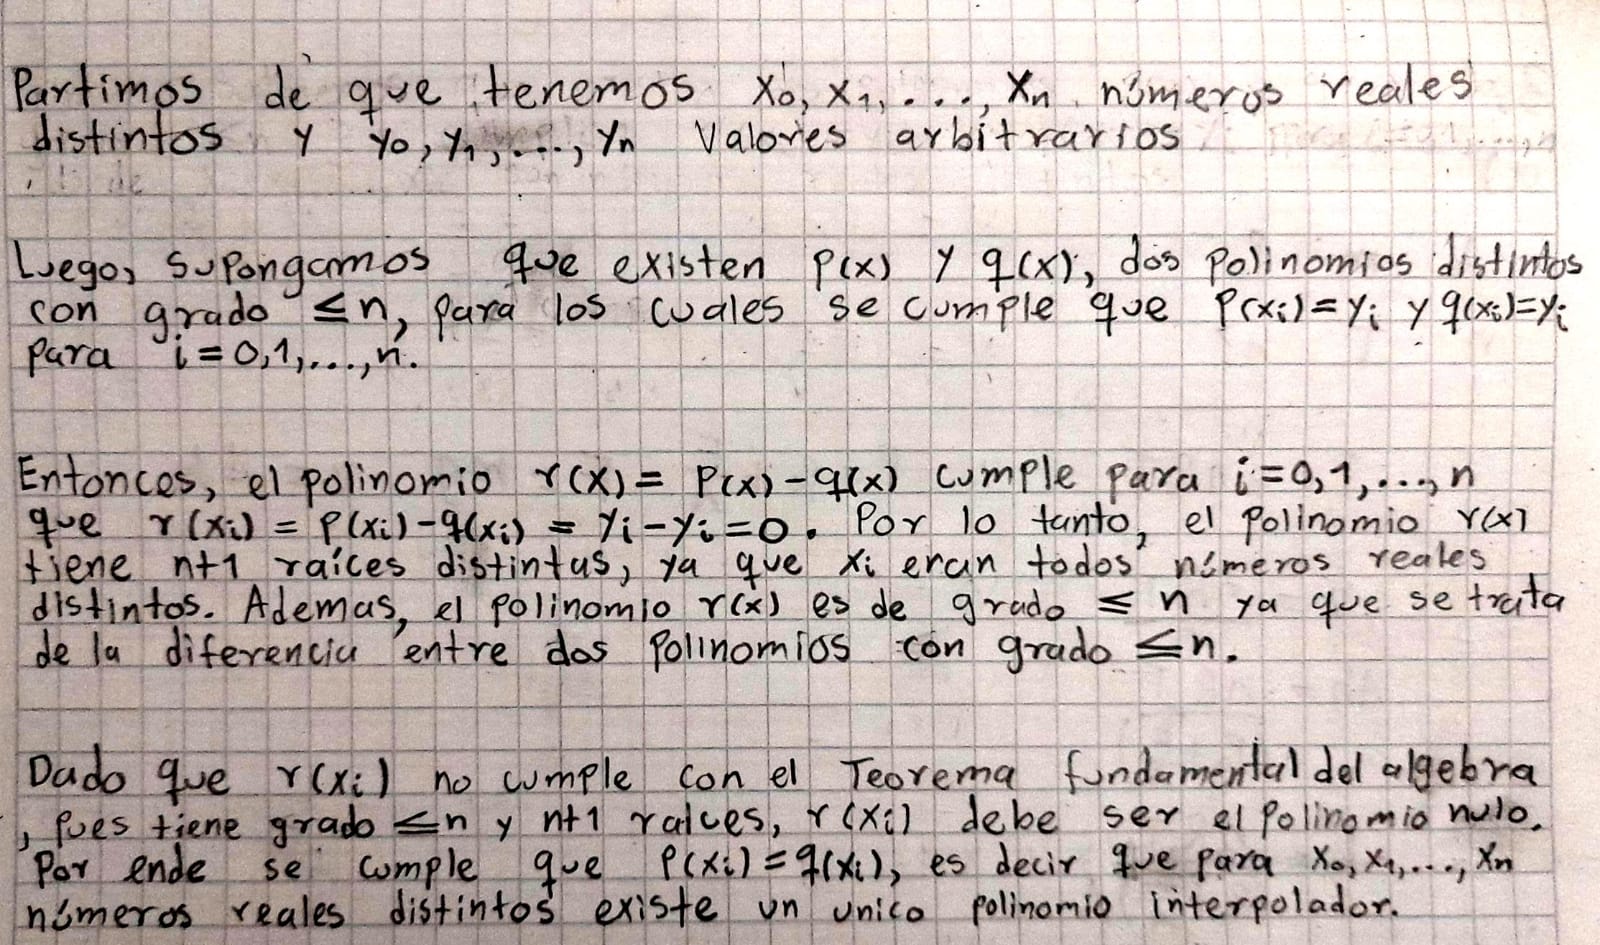 Partimos de que tenemos x0, x1, ..., xn números reales
distintos y y0, y1, ..., yn valores arbitrarios
Luego, supongamos que existen p(x) y q(x), dos polinomios distintos
con grado ≤n, para los cuales se cumple que p(xi)=yi y q(xi)=yi
para i=0,1,...,n.
Entonces, el polinomio r(x) = p(x)-q(x) cumple para i=0,1,...,n
que r(xi) = p(xi)-q(xi) = yi-yi=0. Por lo tanto, el polinomio r(x)
tiene n+1 raíces distintas, ya que xi eran todos números reales
distintos. Ademas, el polinomio r(x) es de grado ≤ n ya que se trata
de la diferencia entre dos polinomios con grado ≤n.
Dado que r(xi) no cumple con el Teorema fundamental del algebra
, pues tiene grado ≤n y n+1 raices, r(xi) debe ser el polinomio nulo.
Por ende se cumple que p(xi)=q(xi), es decir que para x0, x1, ..., xn
números reales distintos existe un unico polinomio interpolador.